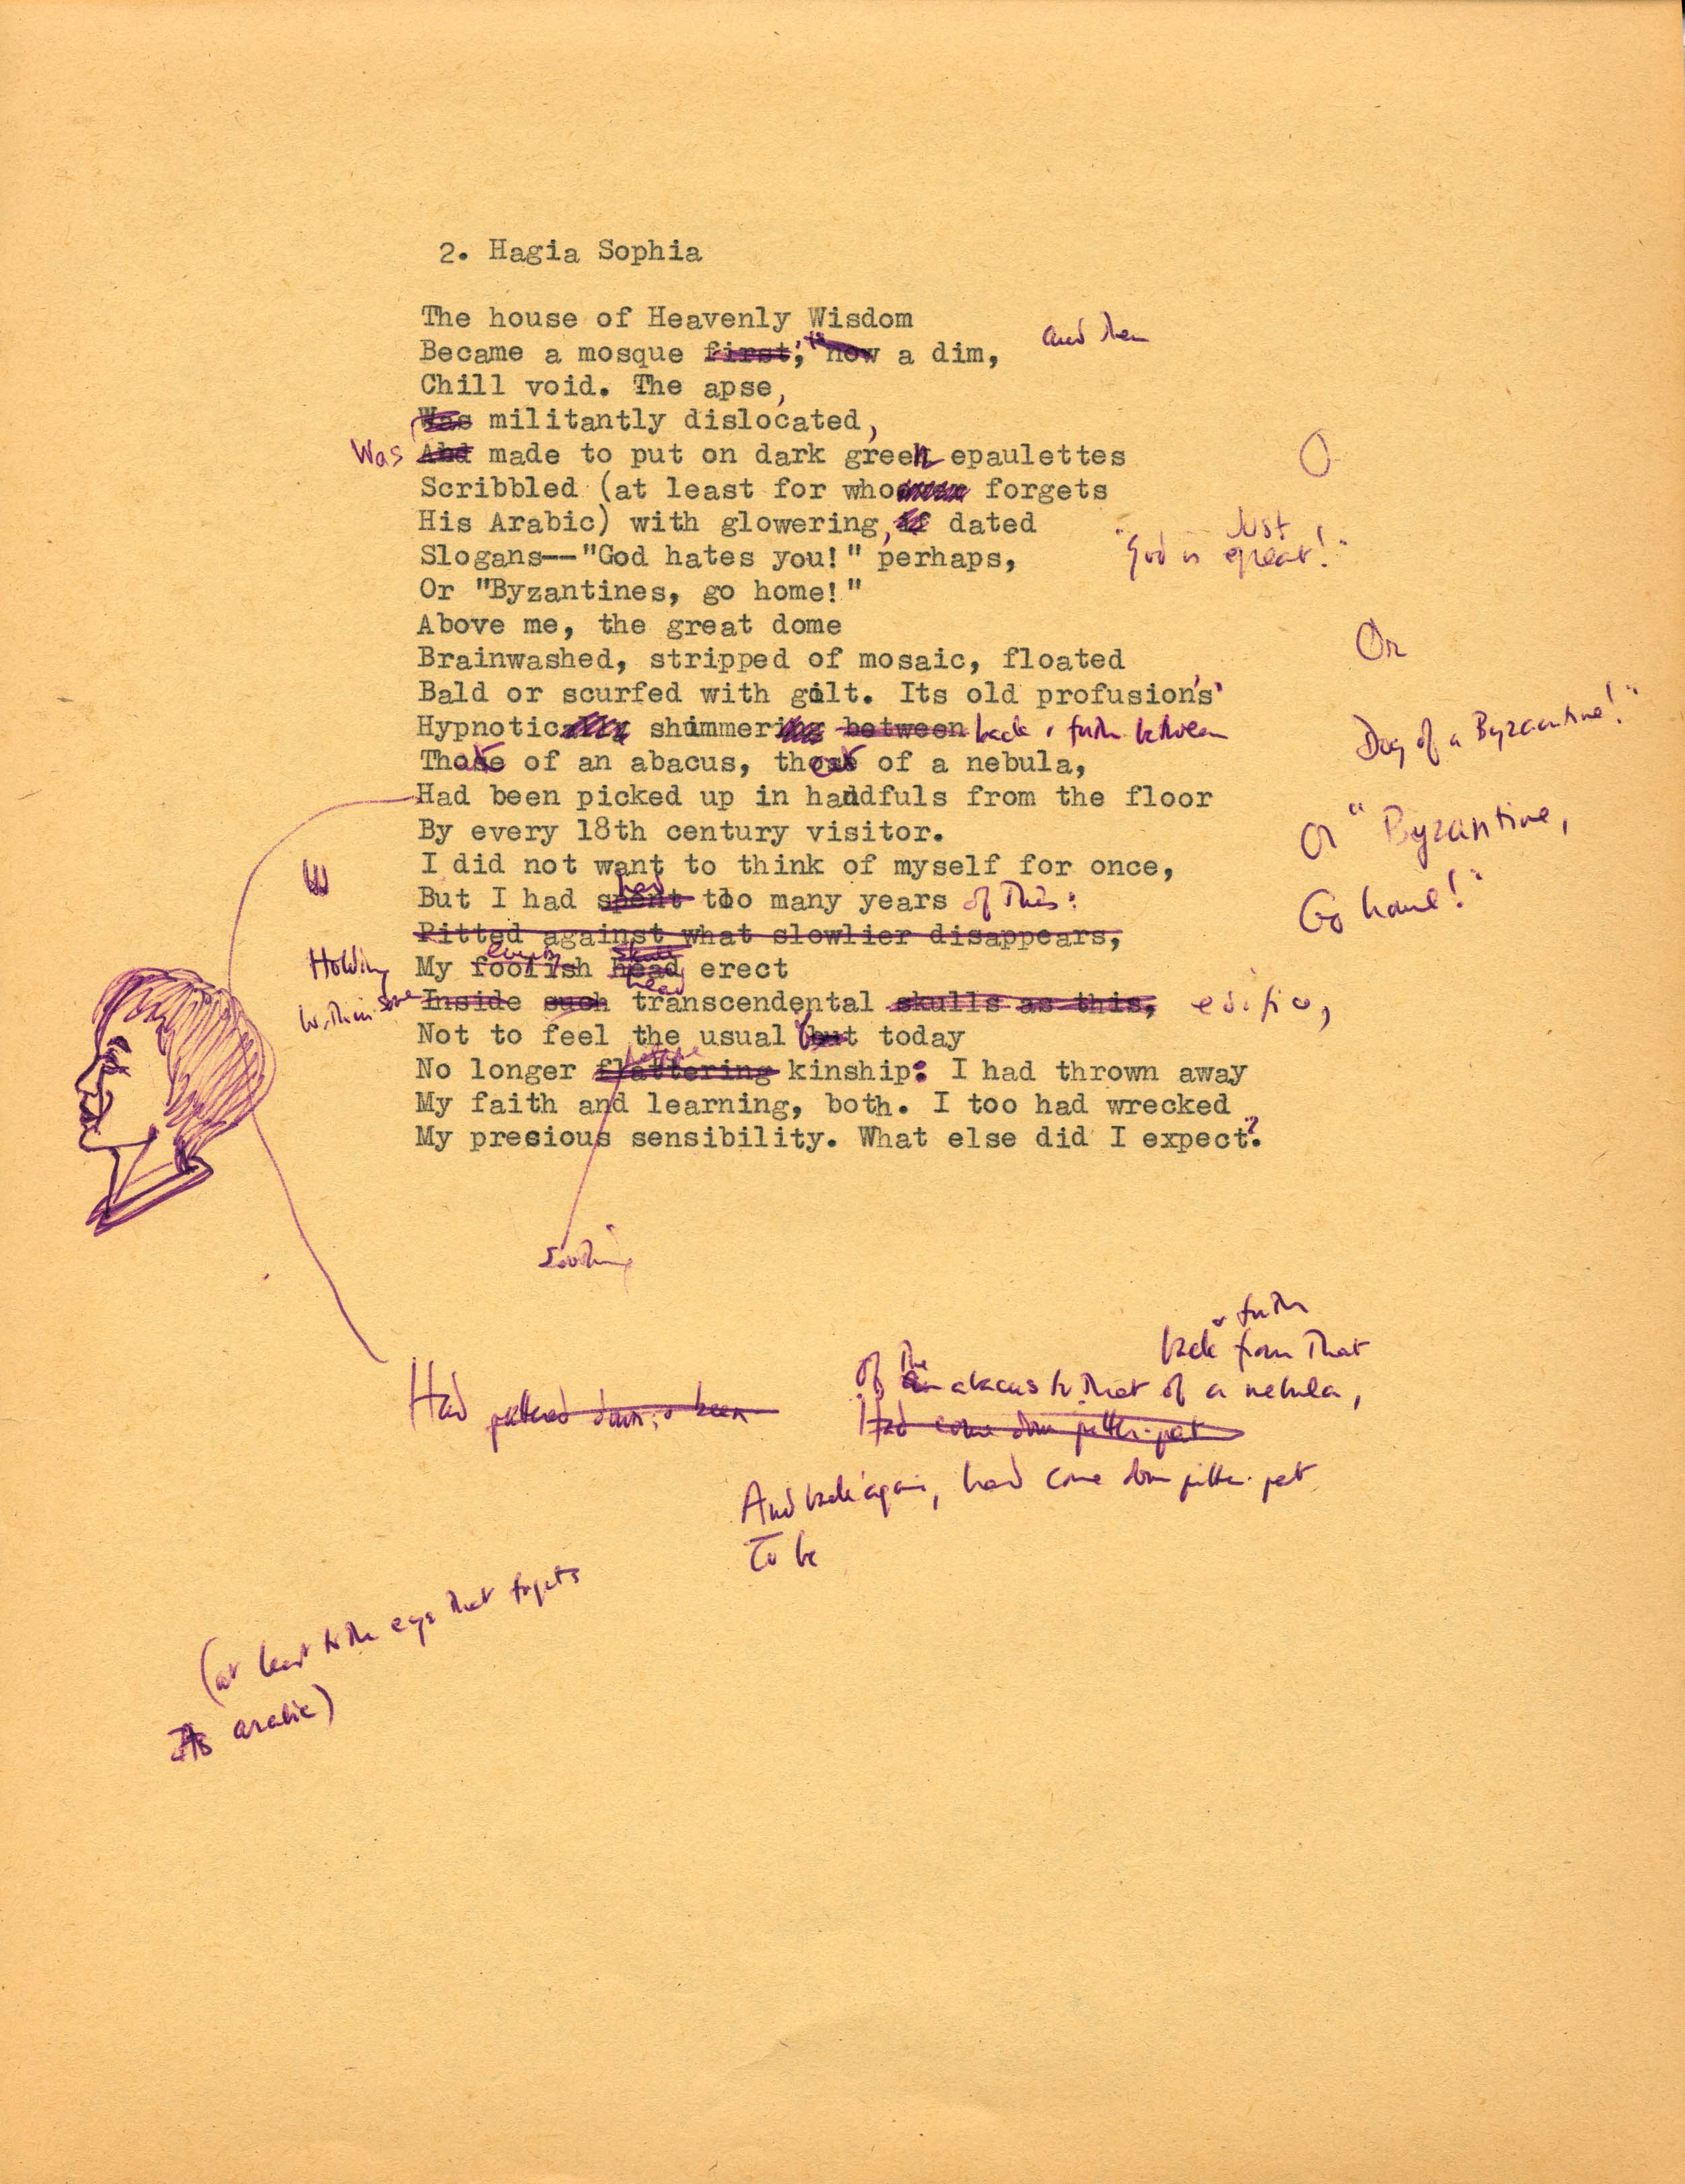 2. Hagia Sophia
The house of Heavenly Wisdom
and then
Became a mosque first; now a dim,
Chill void. The apse,
Was militantly dislocated,
Was And made to put on dark green epaulettes
O
Scribbled (at least for who forgets
His Arabic) with glowering, dated
Just
"God is great!"
Slogans--"God hates you!" perhaps,
Or "Byzantines, go home!"
Above me, the great dome
Or
Brainwashed, stripped of mosaic, floated
Bald or scurfed with gilt. Its old profusion's
Dog of a Byzantine!"
Hypnotic shimmer between back & forth between
Those of an abacus, those of a nebula,
Had been picked up in handfuls from the floor
Or "Byzantine,
By every 18th century visitor.
I did not want to think of myself for once,
had
But I had spent too many years of this:
Go home!"
Pitted against what slowlier disappears,
skull
Holding My foolish head erect
head
Within some Inside such transcendental skulls as this, edifice,
Not to feel the usual but today
No longer flattering kinship: I had thrown away
My faith and learning, both. I too had wrecked
My precious sensibility. What else did I expect?
Soothing
& forth
back from that
of the an abacus to that of a nebula,
Had pattered down, & been
Had come down pitter-pat
And back again, had come down pitter-pat
To be
(at least to the eye that forgets
Its arabic)